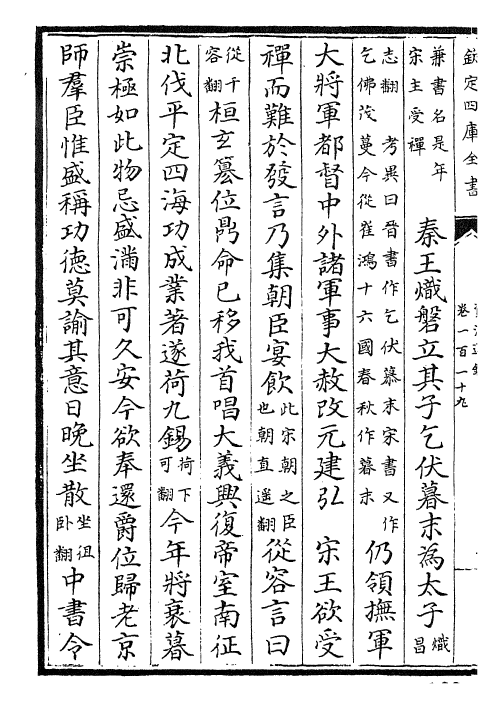 欽定四庫全書
卷一百一十九
兼書名是年宋主受禪秦王熾磐立其子乞伏暮末為太子熾昌
志翻 考異曰晉書作乞伏慕末宋書又作乞佛茂蔓今從崔鴻十六國春秋作暮末仍領撫軍
大將軍都督中外諸軍事大赦改元建弘 宋王欲受
禪而難於發言乃集朝臣宴飲此宋朝之臣也朝直遥翻從容言曰
從千容翻桓玄篡位鼎命已移我首唱大義興復帝室南征
北伐平定四海功成業著遂荷九錫荷下可翻今年將衰暮
崇極如此物忌盛滿非可久安今欲奉還爵位歸老京
師羣臣惟盛稱功徳莫諭其意日晚坐散坐徂卧翻中書令